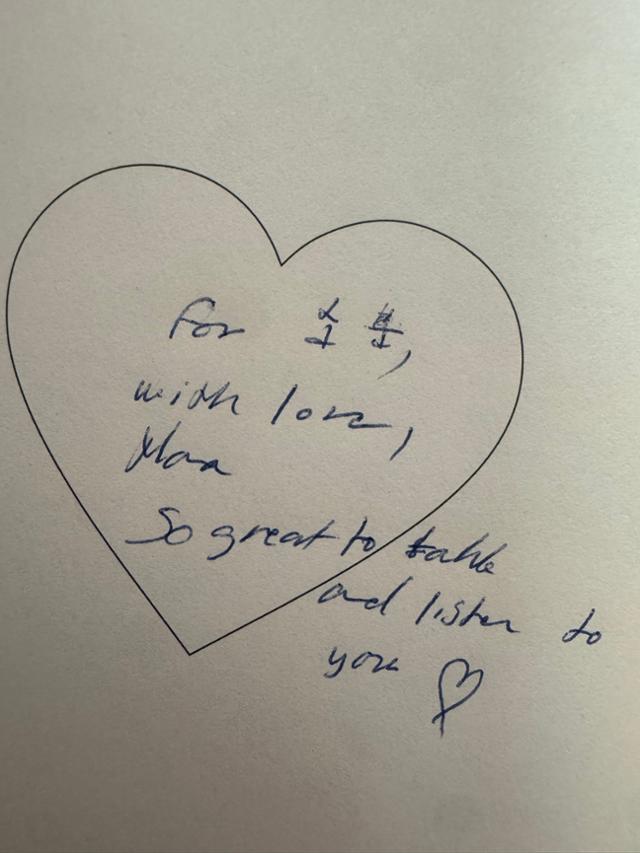 For
with love,
So great to
and listen to
you ♡